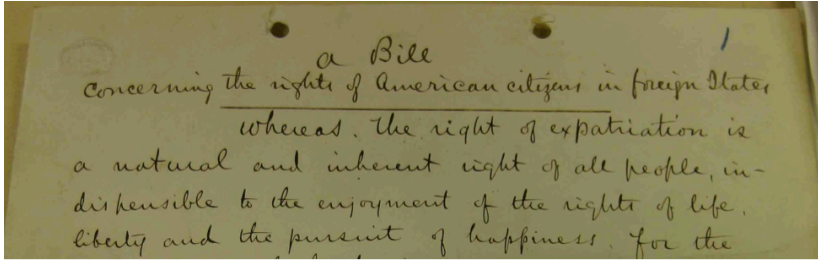 1
a Bill
concerning the rights of American citizens in foreign States
whereas. the right of expatriation is
a natural and inherent right of all people, in-
dispensible to the enjoyment of the rights of life.
liberty and the pursuit of happiness. for the